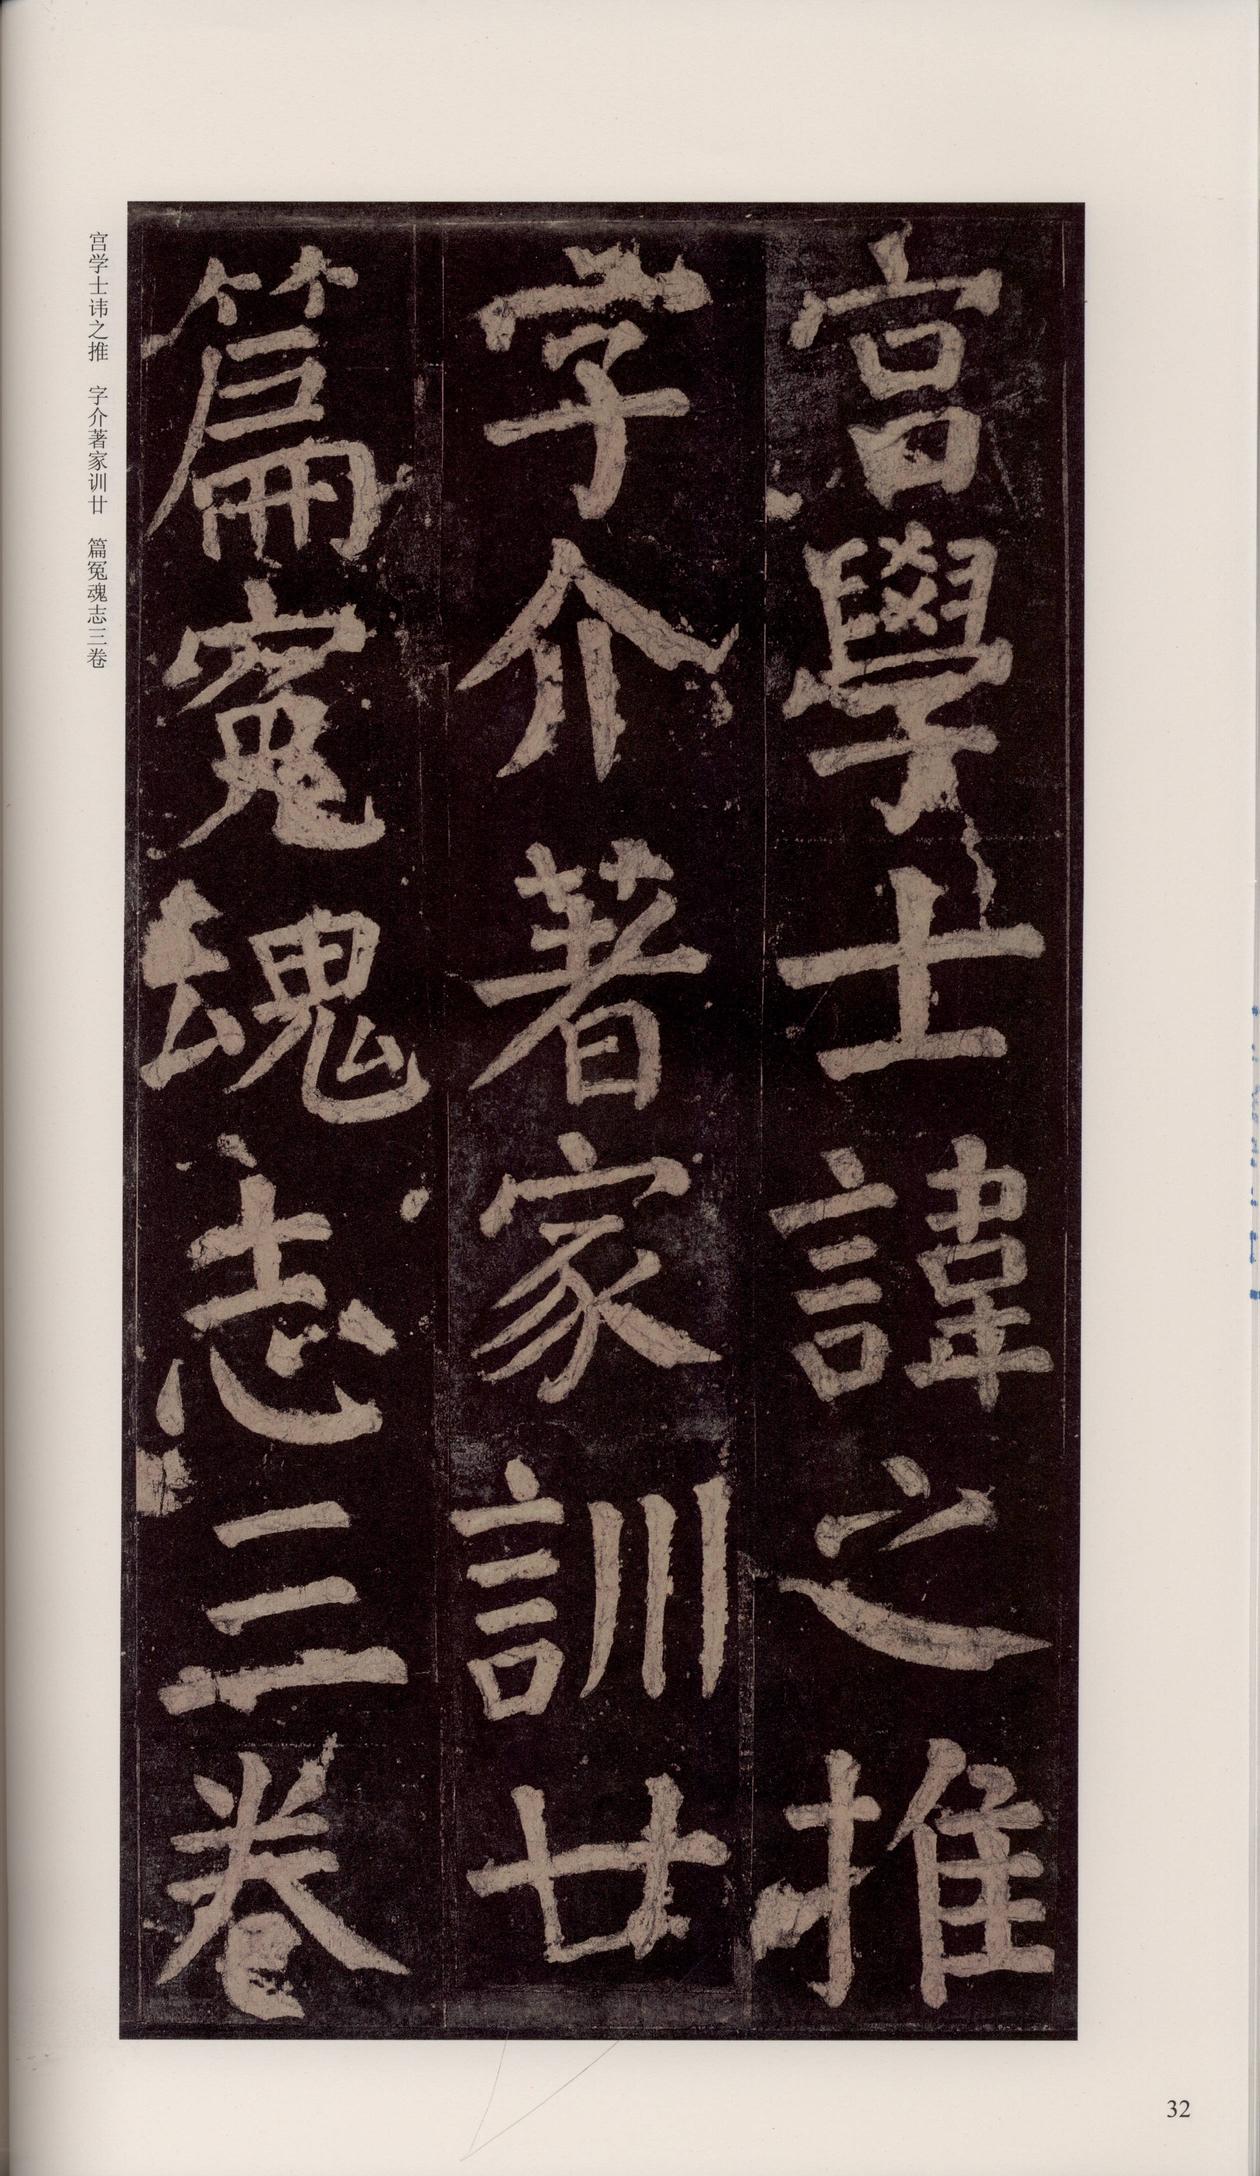 宮學士諱之推
字介著家訓廿
篇寃魂志三卷
宫学士讳之推　字介著家训廿　篇冤魂志三卷
32